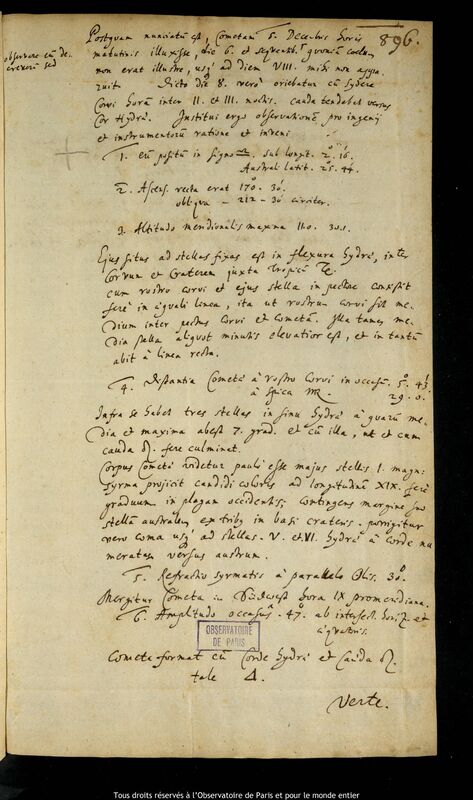 896.
Postquam nunciatum est, Cometam 5. Decembris horis
observare eum de-
creverim sed
matutinis illuxisse, die 6. et sequentib9 quoniam coelum
non erat illustre, usq3 ad diem VIII. mihi non appa
ruit. Dicto die 8. vero oriebatur cum sydere
Corvi horam inter II. et III. noctis. cauda tendebat versus
Cor Hydrae. Institui ergo observationem pro ingenij
et instrumentorum ratione et inveni
1. eum positum in signo ♎ sub longit. 2°. 16'.
Australi latit. 25. 44.
2. Ascens. recta erat 170°. 30'.
obliqua - 212 - 30 circiter.
3. Altitudo meridionalis maxima 110. 30s.
Ejus situs ad stellas fixas est in flexura hydrae, inter
Corvum et Craterem juxta Tropicum
cum rostro corvi et ejus stella in pectore consistit
fere in aequali linea, ita ut rostrum corvi sit me-
dium inter pectus corvi et cometam. Illa tamen me-
dia stella aliquot minutis elevatior est, et in tantum
abit à linea recta.
4. Distantia Cometae à rostro Corvi in occasum. 5°. 43'
à spica ♍. 29. 0.
Infra se habet tres stellas in sinu hydrae à quarum me-
dia et maxima abest 7. grad. et cum illa, ut et cum
cauda ♌. fere culminat.
Corpus Cometae videtur paulo esse majus stellis 1. magn:
syrma projicit candidi coloris ad longitudinem XIX. fere
graduum in plagam occidentis; contingens margine suo
stellam australem ex trib9 in basi crateris. porrigitur
vero coma usq3 ad stellas. V. et VI. hydrae à corde nu
meratas versus austrum.
5. Refractio syrmatis à parallelo Obs. 30°.
Mergitur Cometa in hora IX promeridiana.
6. Amplitudo occasus. 47°. ab intersect. horiz. et
aequatoris.
OBSERVATOIRE
DE PARIS
Cometa format cum Corde hydrae et Cauda ♌.
tale Δ.
Verte.
Tous droits réservés à l'Observatoire de Paris et pour le monde entier